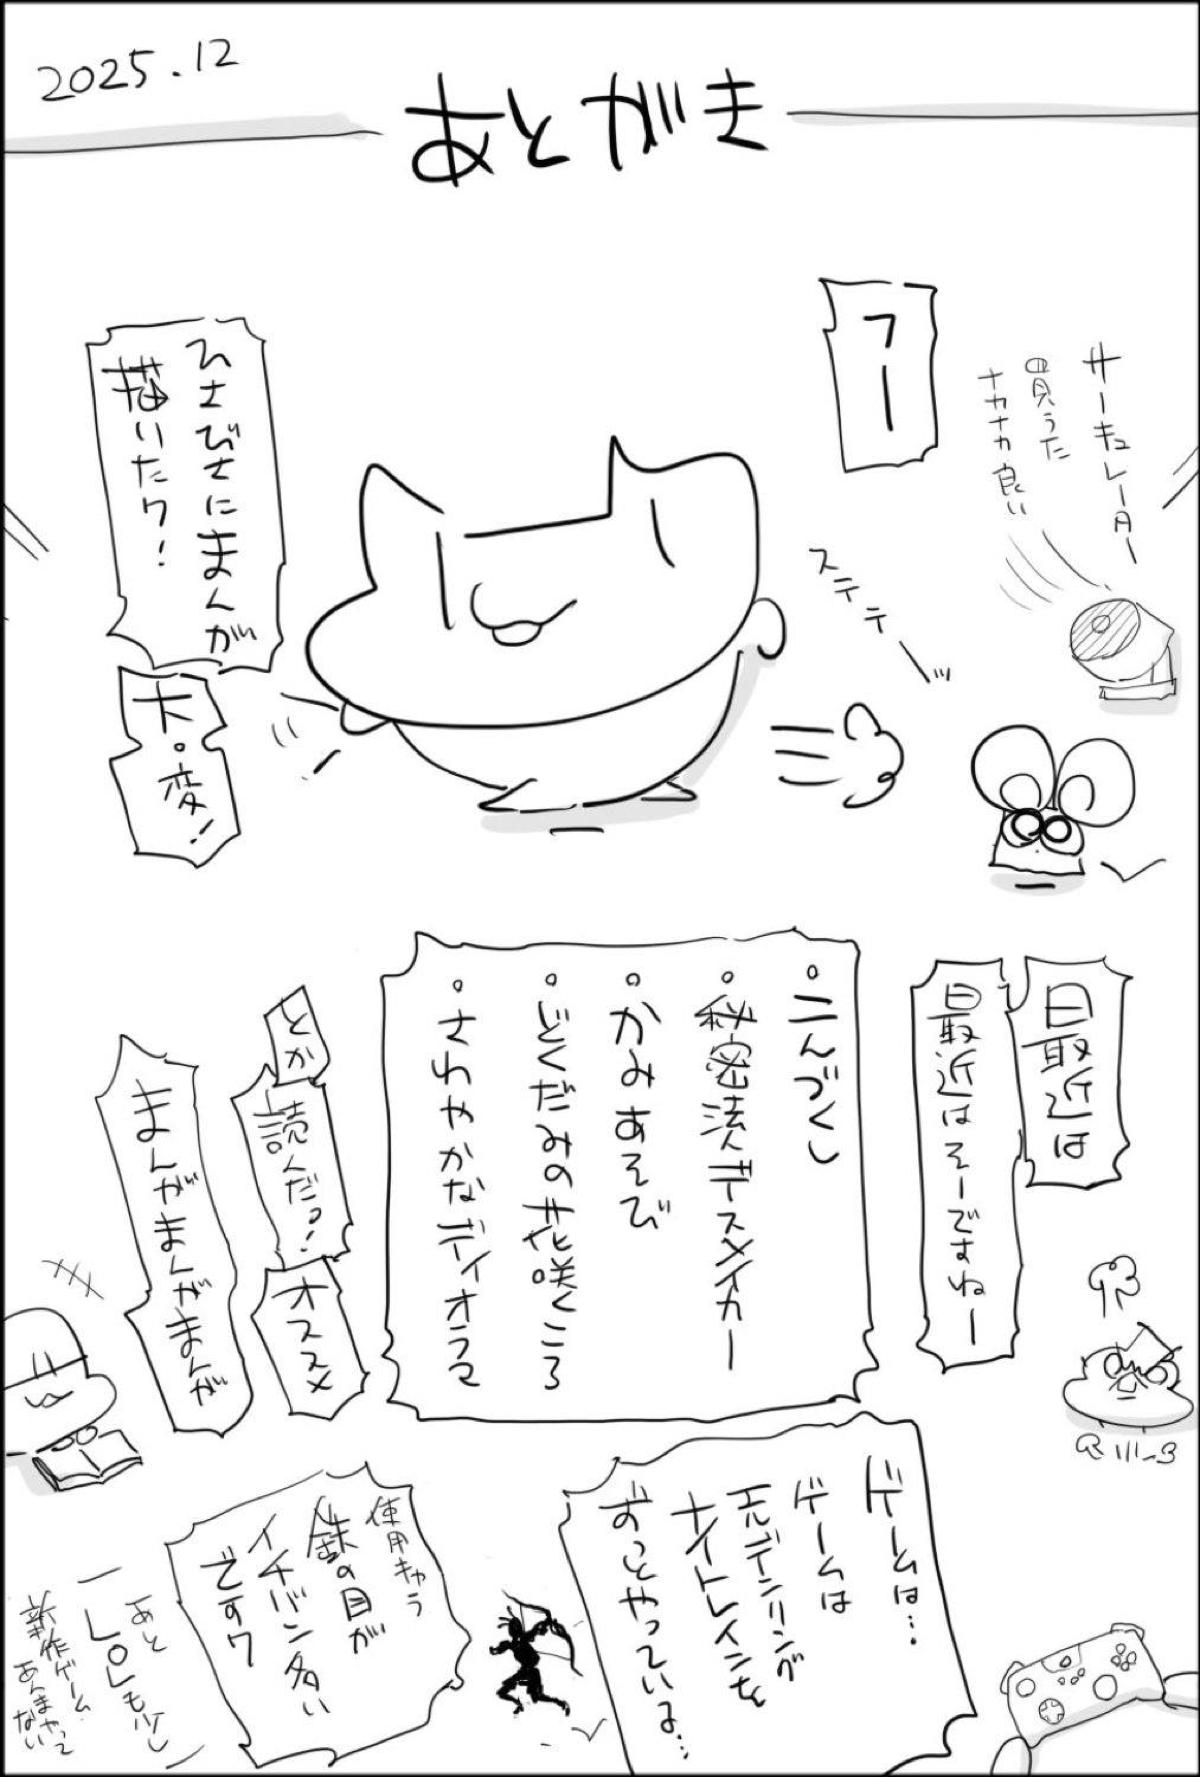 2025.12
あとがき
フー
サーキュレーター
買うた
ナカナカ良い
ステテーッ
ひさびさにまんが
描いたワ!
大・変!
最近は
最近はそーですねー
・こんづくし
・秘密法人デスメイカー
・かみあそび
・どくだみの花咲くころ
・さわやかなディオラマ
とか
読んだっ!
オススメ
まんがまんがまんが
ゲームは…
ゲームは
エルデンリング
ナイトレインを
ずっとやっているよ…
使用キャラ
鉄の目が
イチバン多い
ですワ
あと
LOLも少し
新作ゲーム
あんまやって
ない